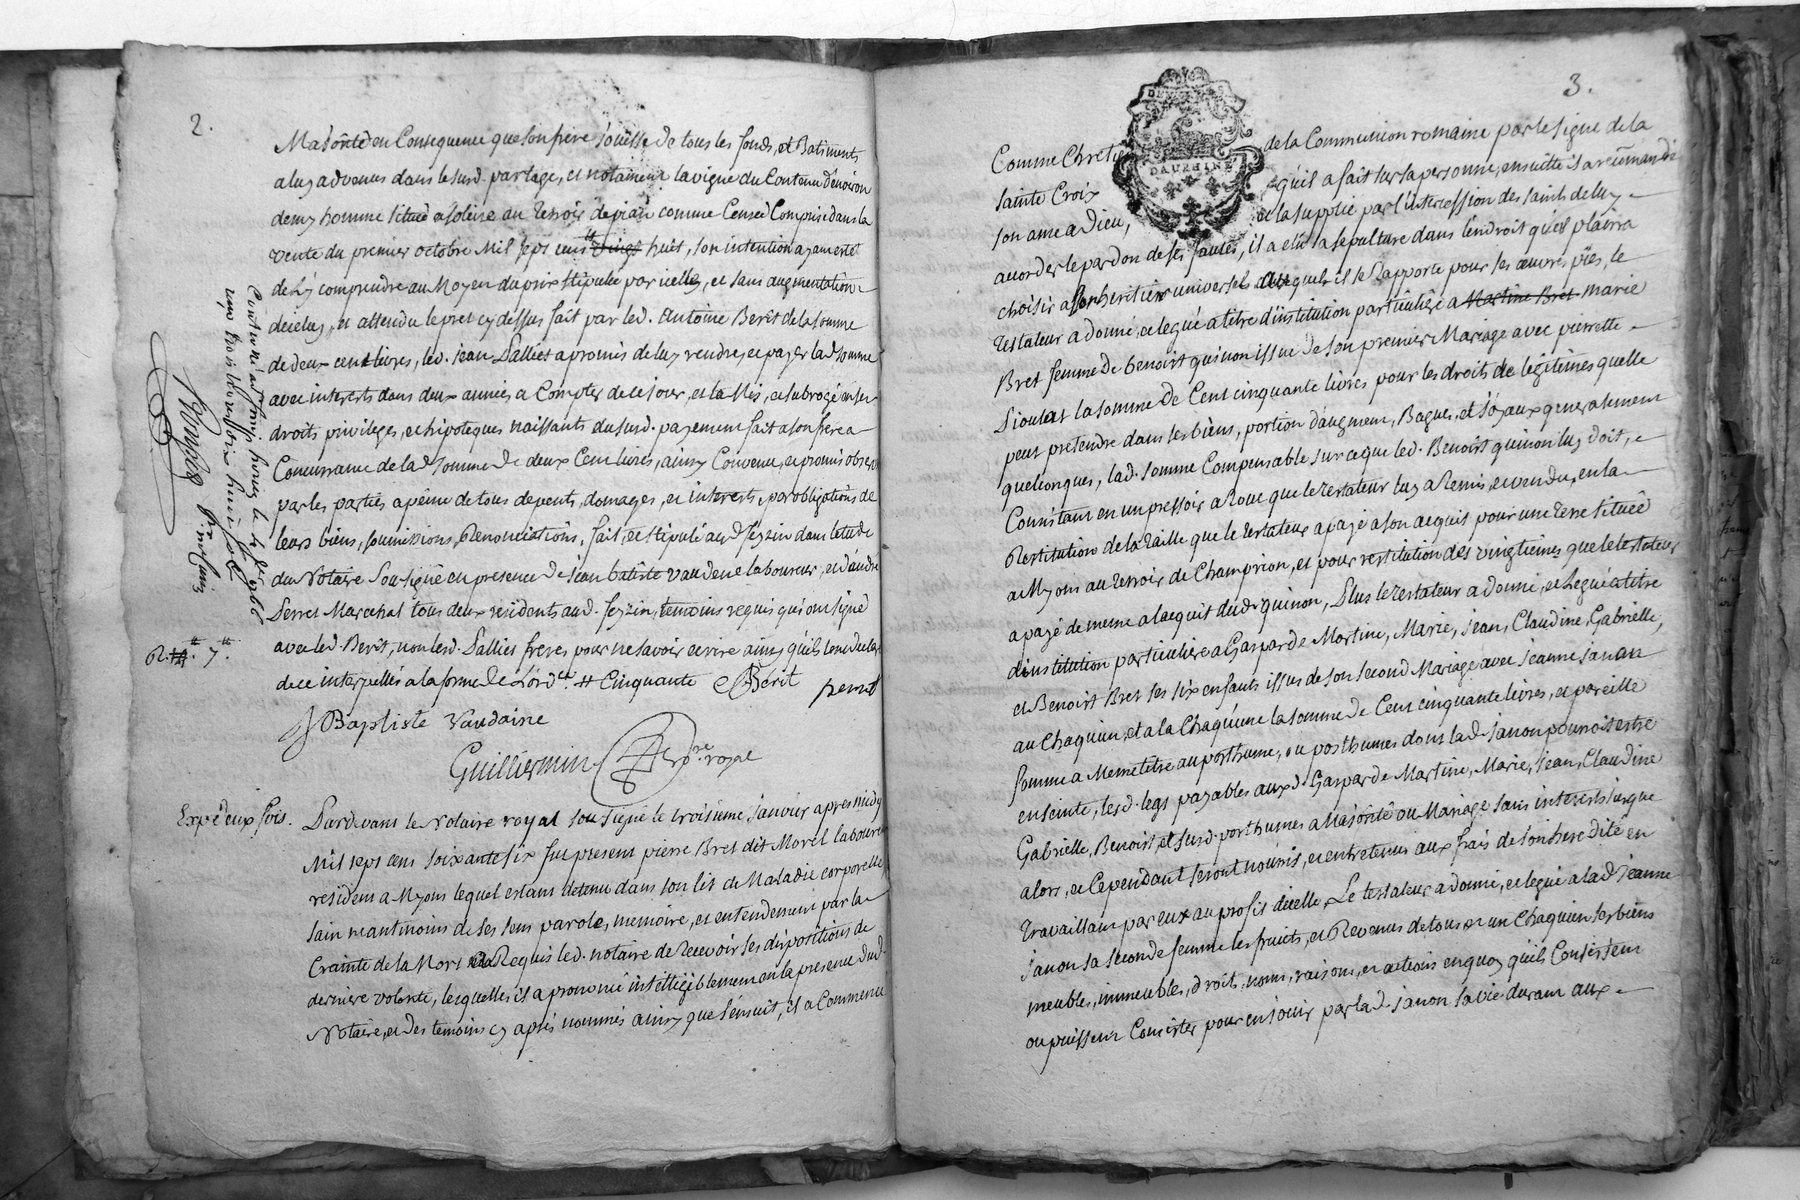 2.
Majorité en Consequence que son frere jouisse de tous les fonds, et Batiments
a luy advenus dans le susd. partage, et notament la vigne du Contenu d'environ
demy homme située a soleize au Terroir de piau comme Censée Comprise dans la
vente du premier octobre Mil sept cens # vingt huit, son intention ayant esté
de l'y comprendre au Moyen du prix stipulée par icelle, et sans augmentation
d'icelluy, et attendu le pret cy dessus fait par led. Antoine Berit de la somme
de deux cent livres, led. jean Lalliet a promis de luy rendre, et payer lad. somme
avec interests dans deux années a Compter de ce jour, et la Mis, et subrogé en ses
droits privileges, et hipoteques naissants du susd. payement fait a son frere a
Concurrance de lad. somme de deux Cent livres, ainsy Convenu, et promis observer
par les parties a peine de tous depents, domages, et interests, par obligations de
leurs biens, soumissions, Renonciations, fait, et stipulé aud. feyzin dans l'etude
du Notaire Soussigné en presence de jean batiste vaudene laboureur, et d'andré
Perret Marechal tous deux residents aud. feyzin, temoins requis qui ont signé
avec led. Berit, non lesd. Lalliet freres pour ne savoir ecrire ainsy qu'ils l'ont declaré
de ce interpellés a la forme de l'ord.ce # Cinquante Berit perret
J Baptiste Vaudaine
Guilliermin n.re royal
Controllé a St Simp horien le 4 jer 1766
reçu trois livres
Expé deux fois.
Pardevant le Notaire royal soussigné le troisieme janvier apres midy
Mil sept cens soixante six fut present pierre Bret dit Morel laboureur
resident a Myons lequel estant detenu dans son lit de Maladie corporelle
sain neantmoins de ses sens parole, memoire, et entendement par la
Crainte de la Mort a Requis led. notaire de Recevoir ses dispositions de
derniere volonté, lesquelles il a prononcé intelligiblement en la presence dud.
Notaire, et des temoins cy aprés nommés ainsy que s'ensuit, il a Commencé
3.
DAUPHINÉ
Comme Chretien de la Communion romaine par le signe de la
Sainte Croix qu'il a fait sur sa personne, ensuitte il a recommandé
son ame a Dieu, et la supplié par l'intercession des saints de luy
accorder le pardon de ses fautes, il a elû sa sepulture dans l'endroit qu'il plairra
choisir a son heritier universel auquel il se Rapporte pour ses œuvres pies, le
testateur a donné, et legué a titre d'institution particuliere a Martine Bret marie
Bret femme de benoist quinon issue de son premier Mariage avec pierrette
Lioutat la somme de Cent cinquante livres pour les droits de legitimes quelle
peut pretendre dans ses biens, portion d'augment, Bagues, et joyaux generalement
quelconques, lad. somme Compensable sur ce que led. Benoist quinon luy doit, et
Consistant en un pressoir a Roue que le testateur luy a Remis, et vendu, en la
Restitution de la Taille que le testateur a payé a son acquis pour une terre située
a Myons au terroir de Champrion, et pour restitution des vingtiemes que le testateur
a payé de meme a l'acquit dud. quinon, Plus le testateur a donné, et legué a titre
d'institution particuliere a Gasparde Martine, Marie, jean, Claudine, Gabrielle,
et Benoist Bret ses six enfants issus de son second Mariage avec jeanne janon
au Chaqu'un, et a la Chaqu'une la somme de Cent cinquante livres, et pareille
somme a Meme titre au posthume, ou posthumes dont lad. janon pourroit estre
enceinte, lesd. legs payables auxd. Gasparde Martine, Marie, jean, Claudine
Gabrielle, Benoist, et susd. posthumes a Majorité ou Mariage sans interests jusque
alors, et Cependant seront nourris, et entretenus aux frais de son heredité en
travaillant par eux au profit dicelle, Le testateur a donné, et legué a lad. jeanne
janon sa seconde femme les fruits, et Revenus de tous et un chaqu'un ses biens
meubles, immeubles, droits, noms, raisons, et actions en quoy qu'ils Consistent
ou puissent Consister pour en jouir par lad. janon sa vie durant aux